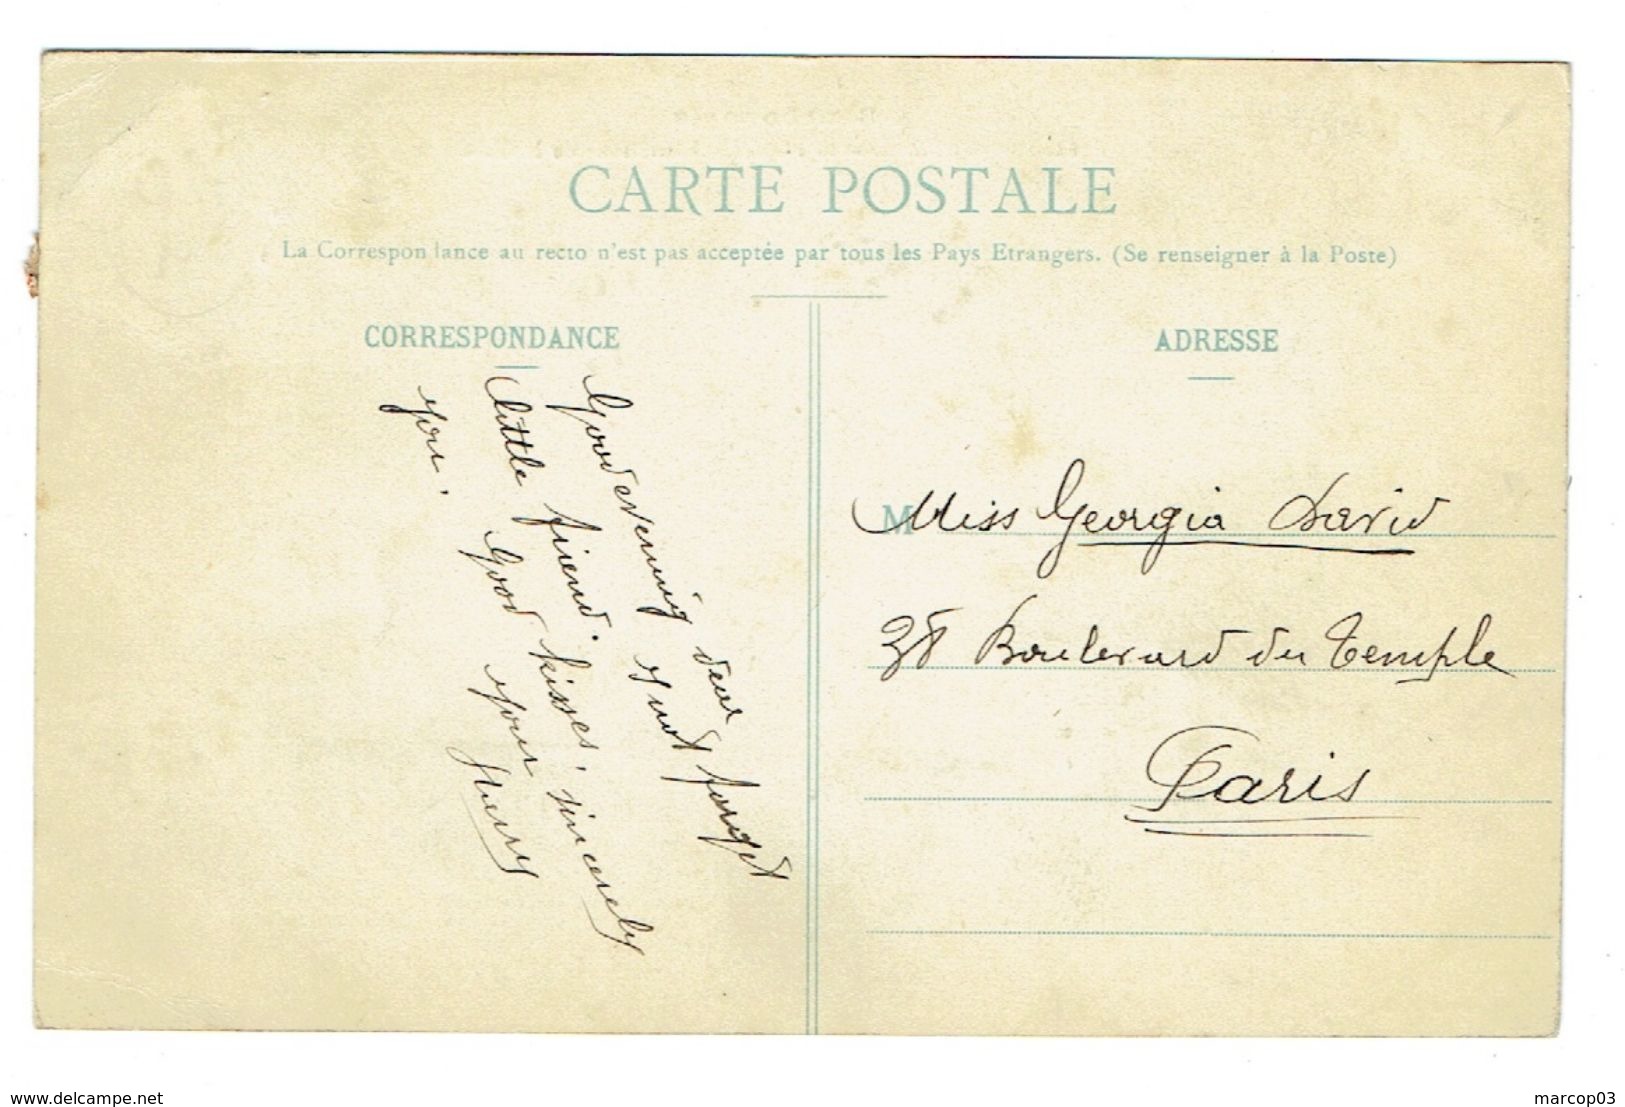 CARTE POSTALE
La Correspondance au recto n'est pas acceptée par tous les Pays Etrangers. (Se renseigner à la Poste)
CORRESPONDANCE
Good evening dear
little friend. I not forget
you. Good kisses, sincerely
your
Henry
ADRESSE
M
Miss Georgia David
38 Boulevard du Temple
Paris
www.delcampe.net
marcop03